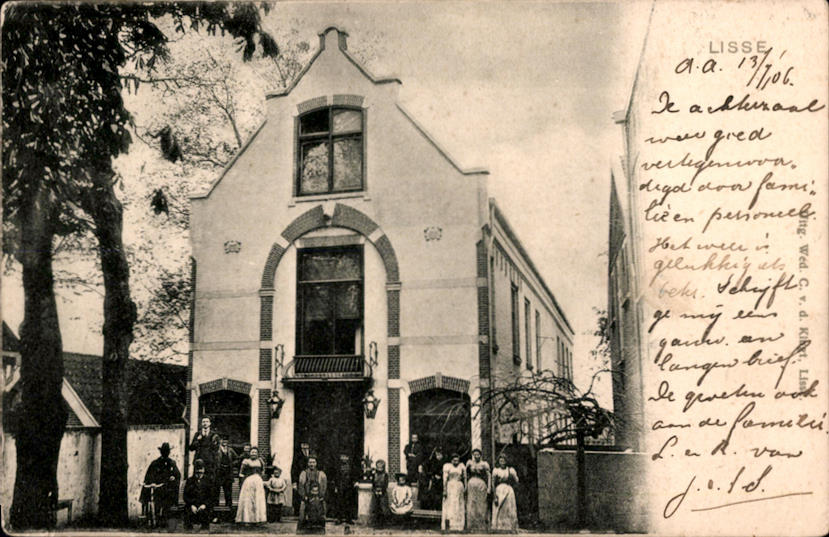 LISSE
a.a. 13/7/06.
De achterzaal
weer goed
vertegenwoor-
digd door fami-
lie en personeel.
Het weer is
gelukkig als
Schrijft
ge mij eens
gauw. en
langen brief.
De groeten ook
aan de familie.
L. en R. van
Uitg. Wed. C. v. d. Lisse